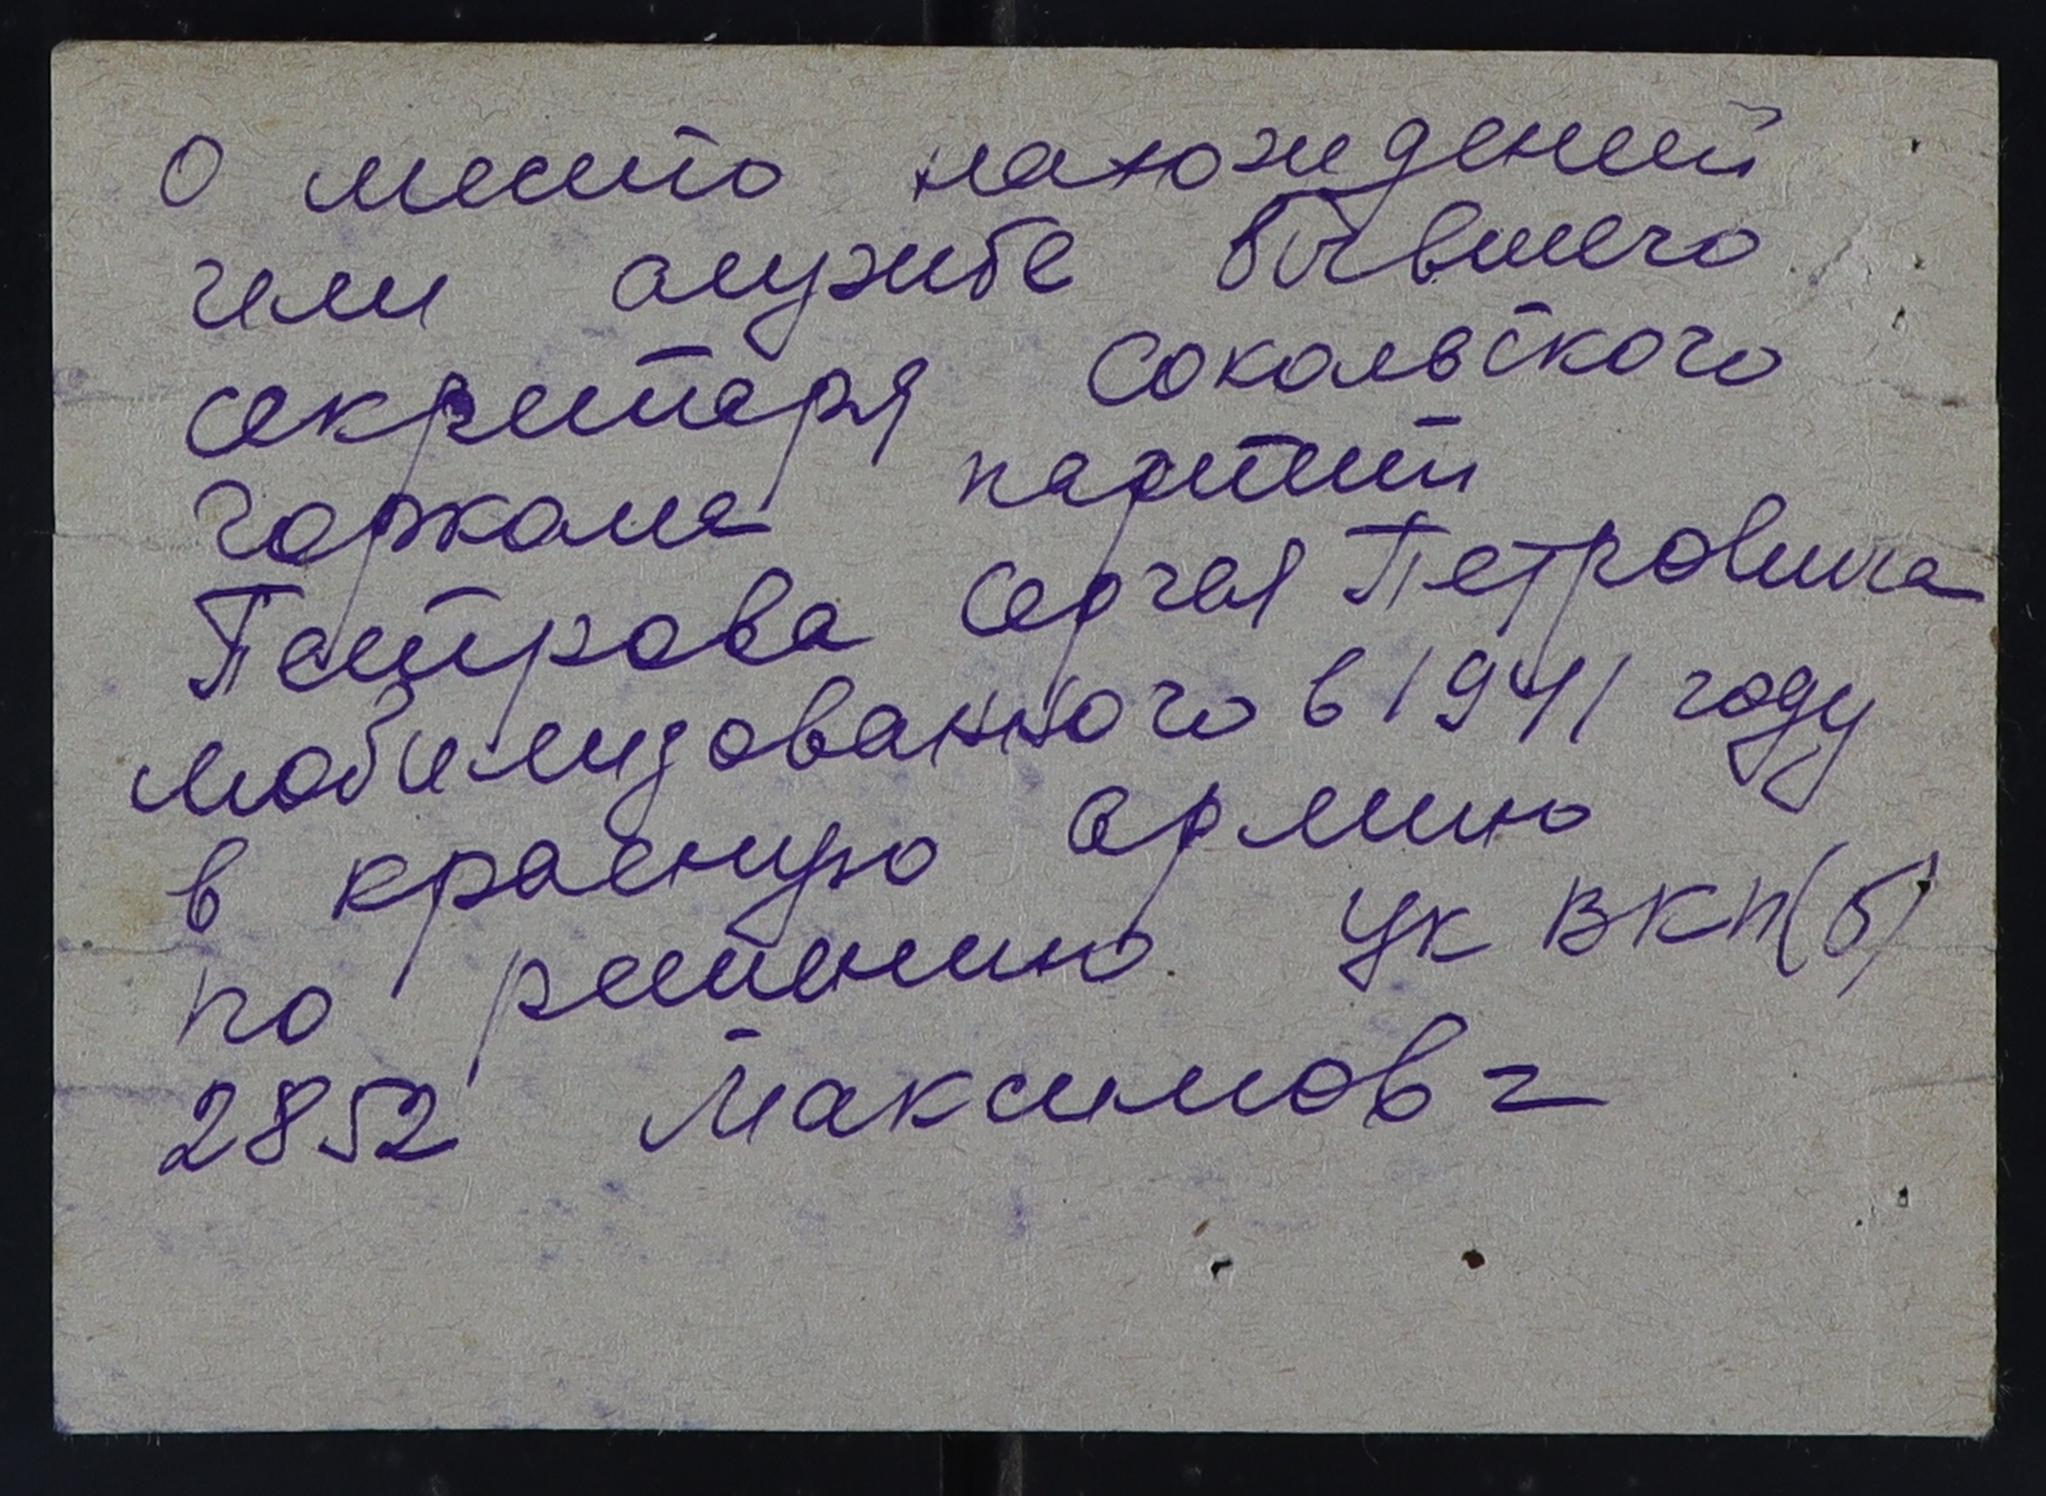 О место нахождений
или службе бывшего
секретаря Сокольского
горкома партий
Петрова Сергея Петровича
мобилизованного в 1941 году
в красную армию
по решению ЦК ВКП(б)
2852 Максимов =